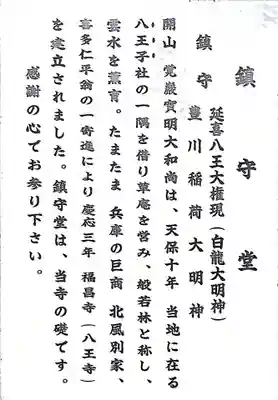 鎮守堂
延喜八王大権現(白龍大明神)
鎮守 豊川稲荷大明神
開山 覚巌實明大和尚は、天保十年 当地に在る
八王子社の一隅を借り草庵を営み、般若林と称し、
雲水を薫育。たまたま 兵庫の巨商 北風別家、
喜多仁平翁の一寄進により慶応三年 福昌寺(八王寺)
を建立されました。鎮守堂は、当寺の礎です。
感謝の心でお参り下さい。